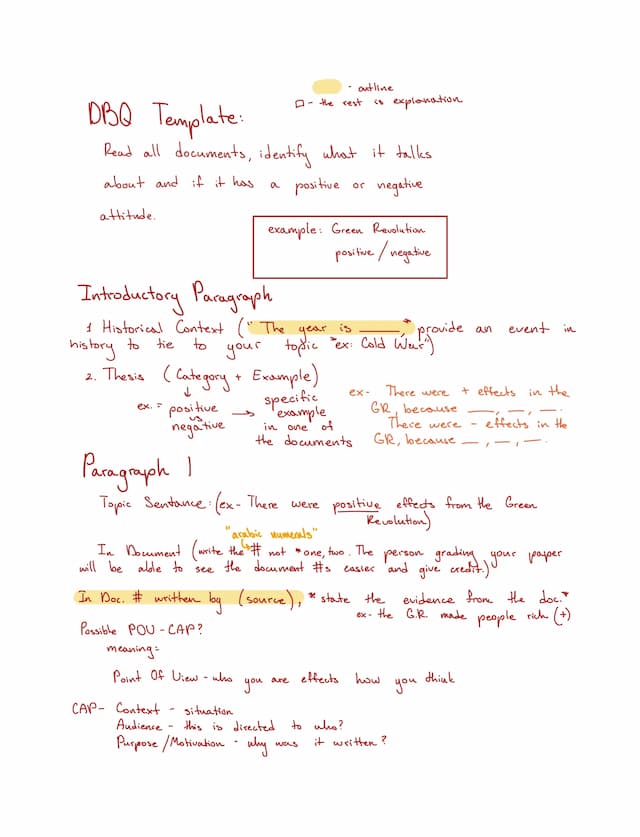 - outline
□ - the rest is explanation
DBQ Template:
Read all documents, identify what it talks
about and if it has a positive or negative
attitude.
example: Green Revolution
positive/negative
Introductory Paragraph
1 Historical Context ("The year is ____," provide an event in
history to tie to your topic "ex: Cold War")
2. Thesis (Category + Example)
ex. = positive → specific example
vs
negative
in one of
the documents
ex- There were + effects in the
GR, because __, __, __.
There were - effects in the
GR, because __, __, __.
Paragraph 1
Topic Sentence: (ex- There were positive effects from the Green
Revolution)
"arabic numerals"
In Document (write the # not "one, two. The person grading your paper
will be able to see the document #s easier and give credit.)
In Doc. # written by (source), * state the evidence from the doc.*
ex- the G.R. made people rich (+)
Possible POU - CAP?
meaning:
Point Of View - who you are effects how you think
CAP- Context - situation
Audience - this is directed to who?
Purpose/Motivation - why was it written?